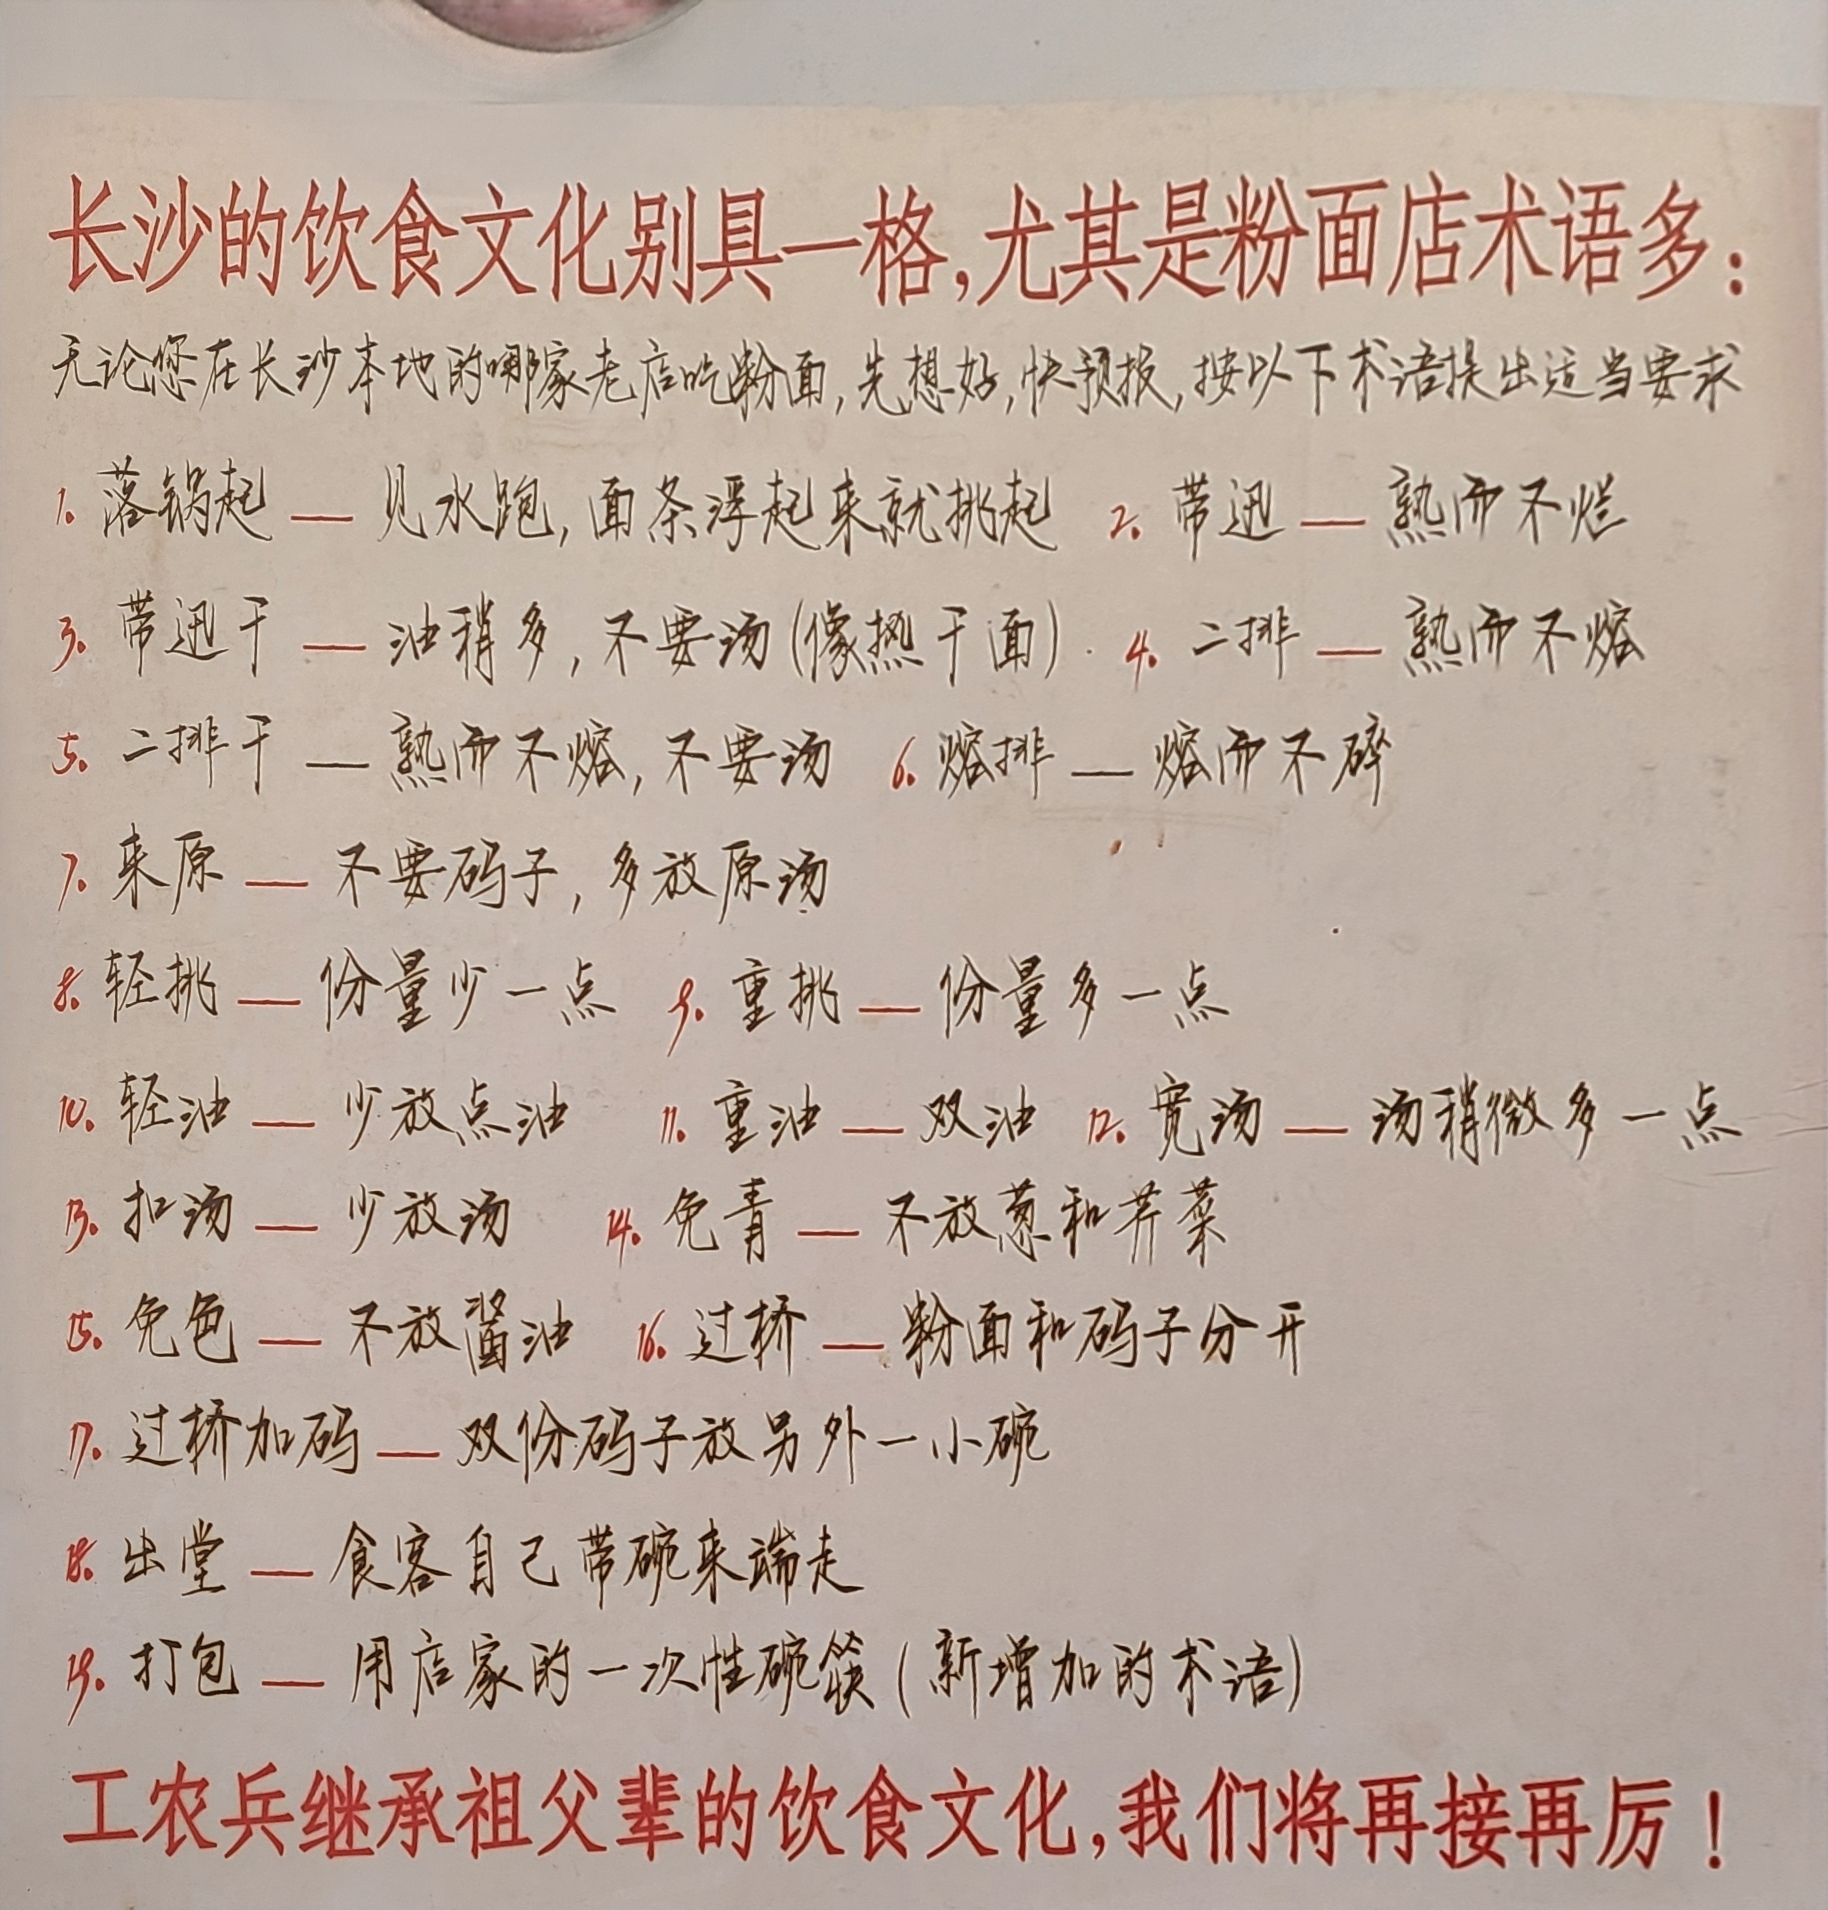 长沙的饮食文化别具一格,尤其是粉面店术语多:
无论您在长沙本地的哪家老店吃粉面,先想好,快预报,按以下术语提出适当要求
1. 落锅起 — 见水跑,面条浮起来就挑起 2. 带迅 — 熟而不烂
3. 带迅干 — 油稍多,不要汤(像热干面) 4. 二排 — 熟而不熔
5. 二排干 — 熟而不熔,不要汤 6. 熔排 — 熔而不碎
7. 来原 — 不要码子,多放原汤
8. 轻挑 — 份量少一点 9. 重挑 — 份量多一点
10. 轻油 — 少放点油 11. 重油 — 双油 12. 宽汤 — 汤稍微多一点
13. 扣汤 — 少放汤 14. 免青 — 不放葱和芥菜
15. 免色 — 不放酱油 16. 过桥 — 粉面和码子分开
17. 过桥加码 — 双份码子放另外一小碗
18. 出堂 — 食客自己带碗来端走
19. 打包 — 用店家的一次性碗筷(新增加的术语)
工农兵继承祖父辈的饮食文化,我们将再接再厉!